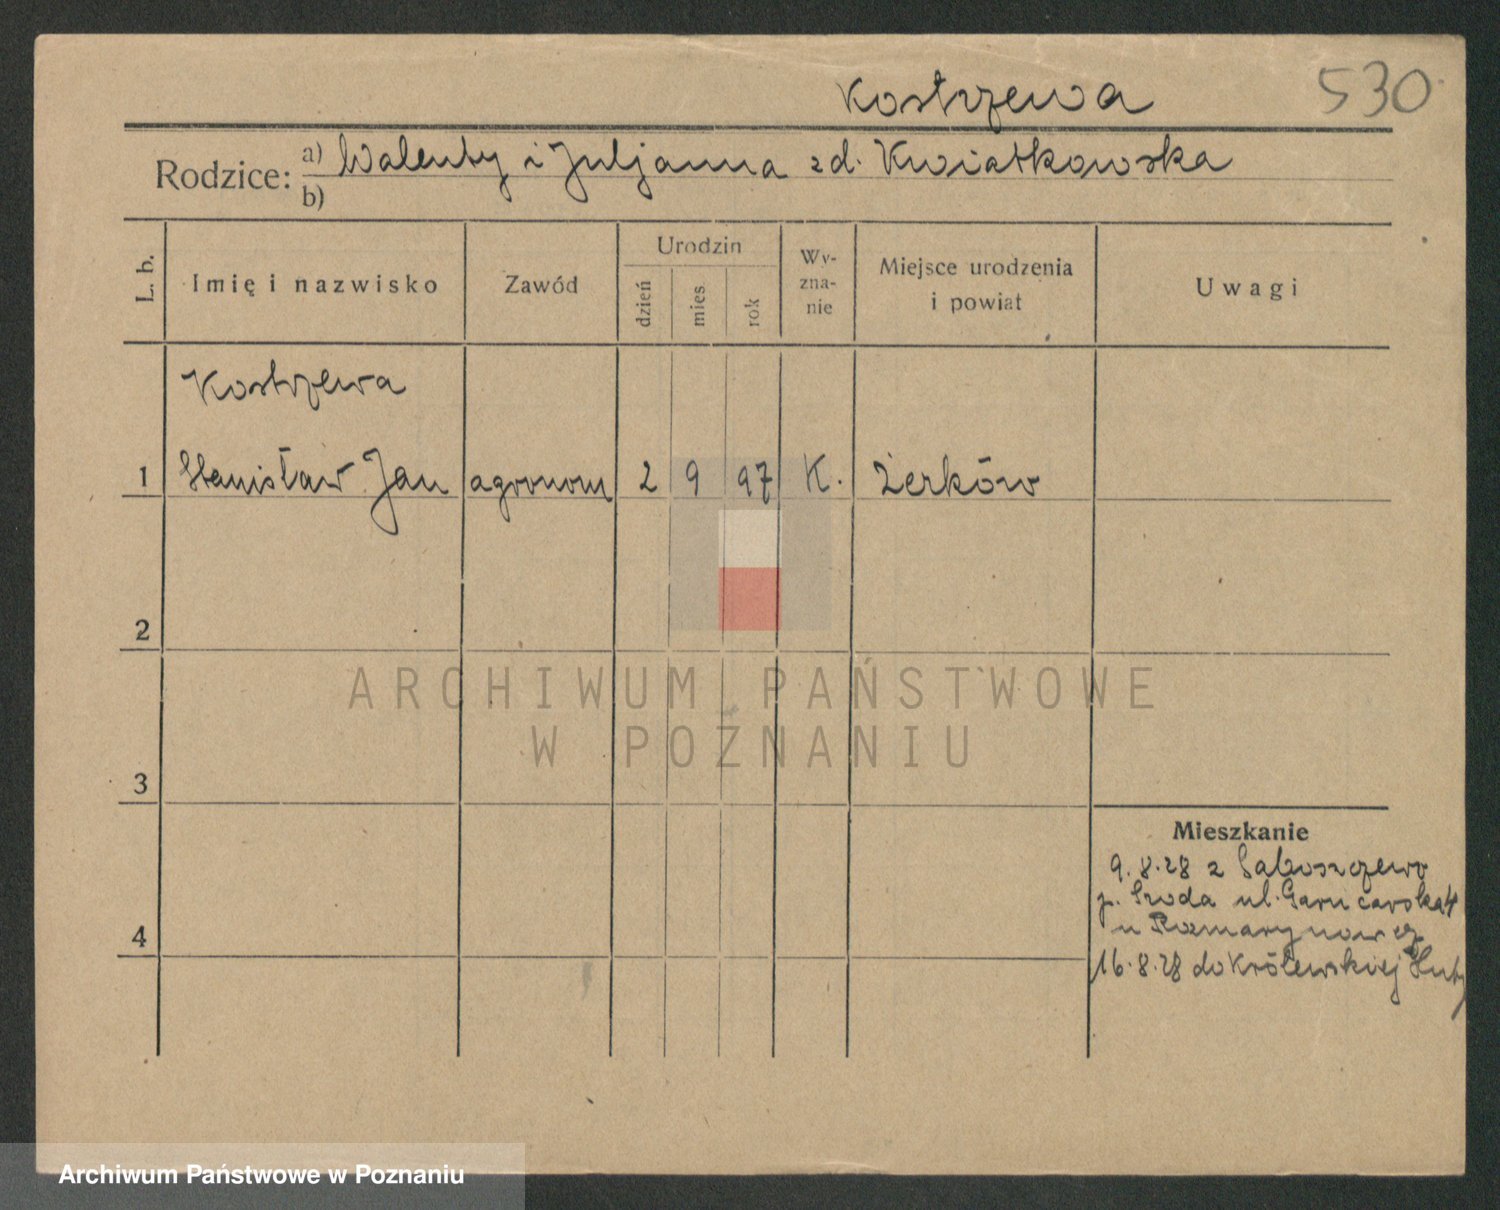 Kostrzewa
530
Rodzice: a) Walenty i Juljanna zd. Kwiatkowska
b)
L. b.
Imię i nazwisko
Zawód
Urodzin
dzień
mies
rok
Wy-
zna-
nie
Miejsce urodzenia
i powiat
Uwagi
Kostrzewa
1 Stanisław Jan agronom 2 9 97 K. Żerków
2
3
4
ARCHIWUM PAŃSTWOWE
W POZNANIU
Mieszkanie
9.8.28 z
p. Środa ul. Garncarska 4
u
16.8.28 do Królewskiej Huty
Archiwum Państwowe w Poznaniu